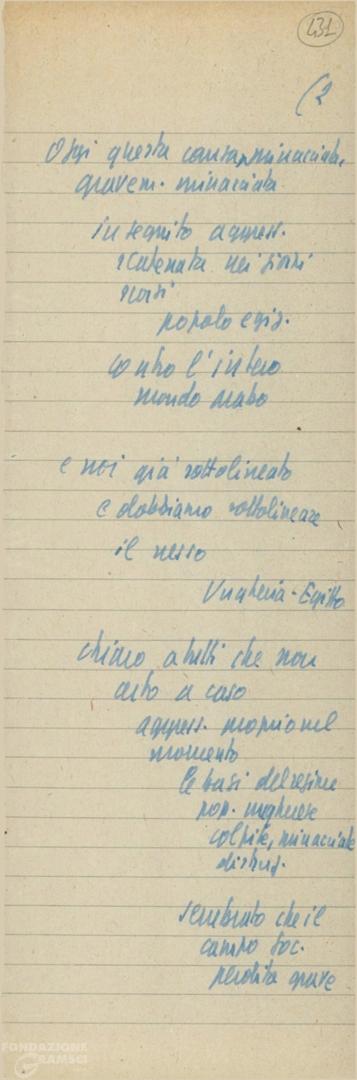 431
(2
Oggi questa causa minacciata,
gravem. minacciata
in seguito aggress.
scatenata nei giorni
scorsi
popolo egiz.
contro l'intero
mondo arabo
e noi già sottolineato
e dobbiamo sottolineare
il nesso
Ungheria - Egitto
chiaro a tutti che non
certo a caso
aggress. proprio nel
momento
le basi del regime
pop. ungherese
colpite, minacciate
distrug.
sembrato che il
campo soc.
perdita grave
FONDAZIONE
GRAMSCI